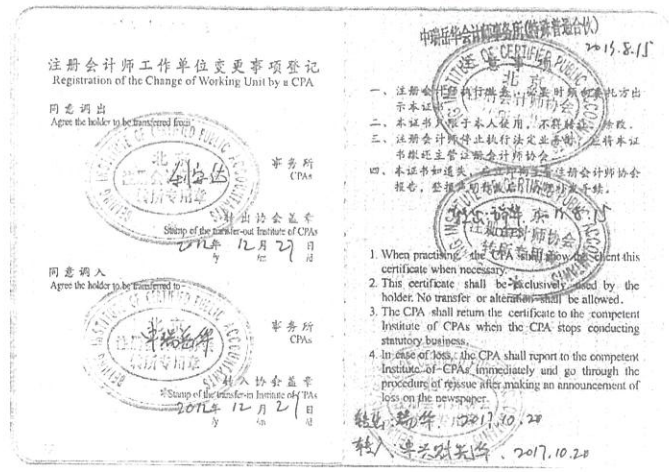 注册会计师工作单位变更事项登记
Registration of the Change of Working Unit by a CPA
同意调出
Agree the holder to be transferred from
事务所
CPAs
转出协会盖章
Stamp of the transfer-out Institute of CPAs
2012年 12月 27日
同意调入
Agree the holder to be transferred to
中瑞岳华
事务所
CPAs
转入协会盖章
Stamp of the transfer-in Institute of CPAs
2012年 12月 27日
中瑞岳华会计师事务所(特殊普通合伙)
2013.8.15
注意事项
一、注册会计师执行业务,必要时须向委托方出
示本证书。
二、本证书只限于本人使用,不得转让、涂改。
三、注册会计师停止执行法定业务时,应将本证
书缴还主管注册会计师协会。
四、本证书如遗失,应立即向主管注册会计师协会
报告,登报声明作废后,办理补发手续。
1. When practising, the CPA shall show the client this
certificate when necessary.
2. This certificate shall be exclusively used by the
holder. No transfer or alteration shall be allowed.
3. The CPA shall return the certificate to the competent
Institute of CPAs when the CPA stops conducting
statutory business.
4. In case of loss, the CPA shall report to the competent
Institute of CPAs immediately and go through the
procedure of reissue after making an announcement of
loss on the newspaper.
转出:瑞华 2017.10.20
转入 2017.10.20